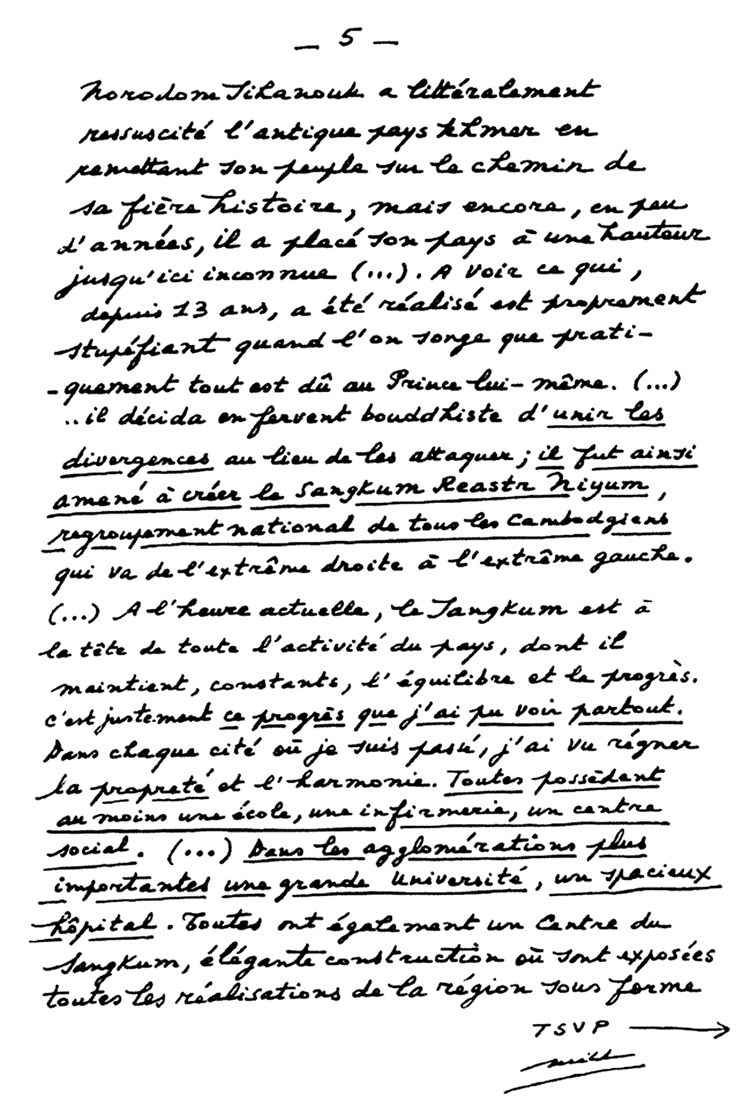 — 5 —
Norodom Sihanouk a littéralement
ressuscité l'antique pays khmer en
remettant son peuple sur le chemin de
sa fière histoire, mais encore, en peu
d'années, il a placé son pays à une hauteur
jusqu'ici inconnue (...). A voir ce qui,
depuis 13 ans, a été réalisé est proprement
stupéfiant quand l'on songe que prati-
-quement tout est dû au Prince lui-même. (...)
..il décida en fervent bouddhiste d'unir les
divergences au lieu de les attaquer ; il fut ainsi
amené à créer le Sangkum Reastr Niyum,
regroupement national de tous les Cambodgiens
qui va de l'extrême droite à l'extrême gauche.
(...) A l'heure actuelle, le Sangkum est à
la tête de toute l'activité du pays, dont il
maintient, constants, l'équilibre et le progrès.
c'est justement ce progrès que j'ai pu voir partout.
Dans chaque cité où je suis passé, j'ai vu régner
la propreté et l'harmonie. Toutes possèdent
au moins une école, une infirmerie, un centre
social. (...) Dans les agglomérations plus
importantes une grande Université, un spacieux
hôpital. Toutes ont également un Centre du
Sangkum, élégante construction où sont exposées
toutes les réalisations de la région sous forme
TSVP →